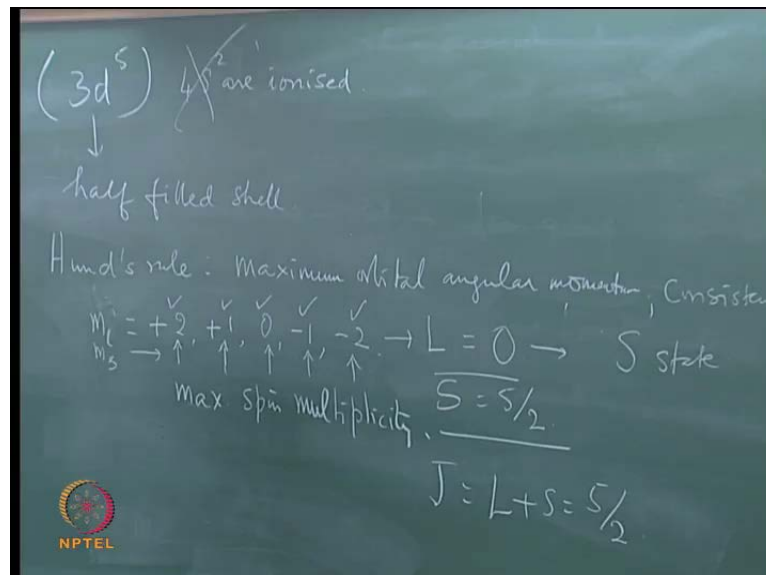 (3d⁵) 4s² are ionised.
↓
half filled shell.
Hund's rule: maximum orbital angular momentum, Consisten
mₗ = +2, +1, 0, -1, -2 → L = 0 → S state
mₛ → ↑ ↑ ↑ ↑ ↑
max. spin multiplicity. S = 5/2.
J = L+S = 5/2
NPTEL